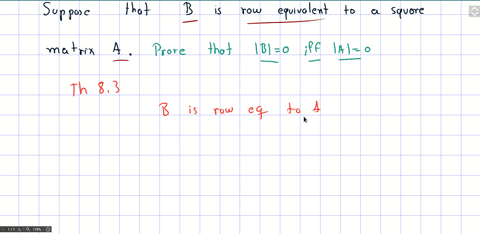 Suppose that B is row equivalent to a square
matrix A. Prove that |B|=0 iff |A|=0
Th 8.3
B is row eq to A